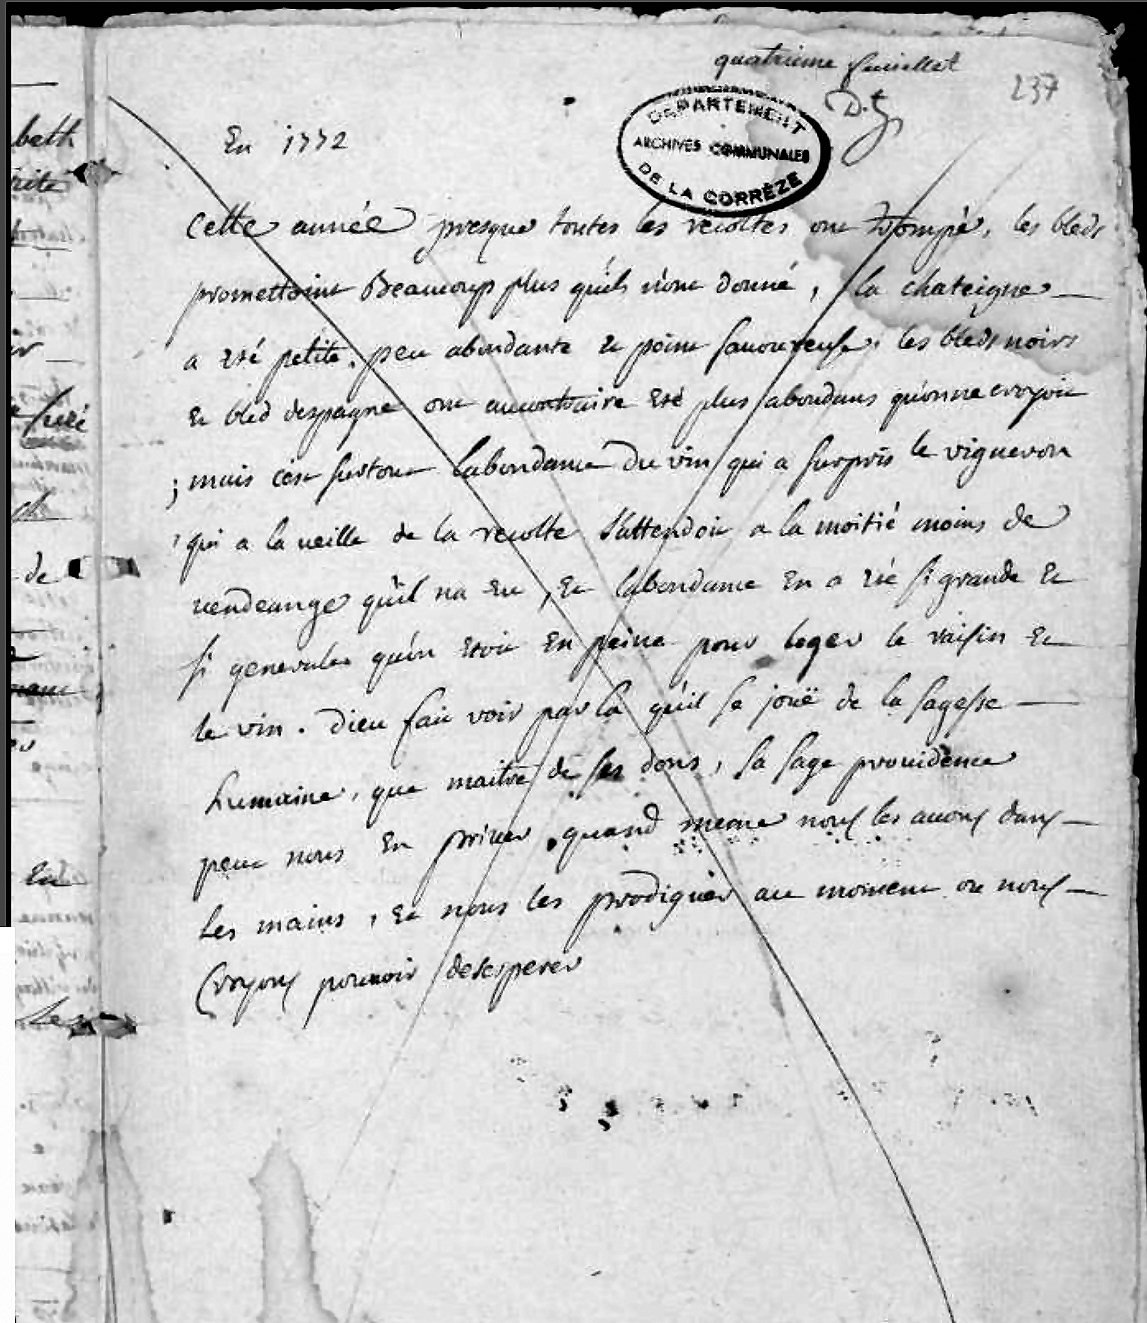 quatrieme feuillet
237
DEPARTEMENT
ARCHIVES COMMUNALES
DE LA CORRÈZE
En 1772
cette année presque toutes les recoltes ont trompé, les bleds
promettoint Beaucoup plus qu'ils n'ont donné, la chateigne
a eté petite, peu abondante et point savoureuse, les bleds noirs
et bled despagne ont aucontraire eté plus abondans qu'onne croyoit
; mais c'est surtout labondance du vin qui a surpris le vigneron
qui a la veille de la recolte s'attendoit a la moitié moins de
vendeange qu'il na eu, et labondance en a eté si grande et
si generale qu'on etoit en peine pour loger le raisin et
le vin. Dieu fait voir par la qu'il se joüe de la sagesse
humaine, que maitre de ses dons, sa sage providence
peut nous en priver quand meme nous les avons dans
les mains, et nous les prodiguer au moment ou nous
croyons pouvoir desesperer